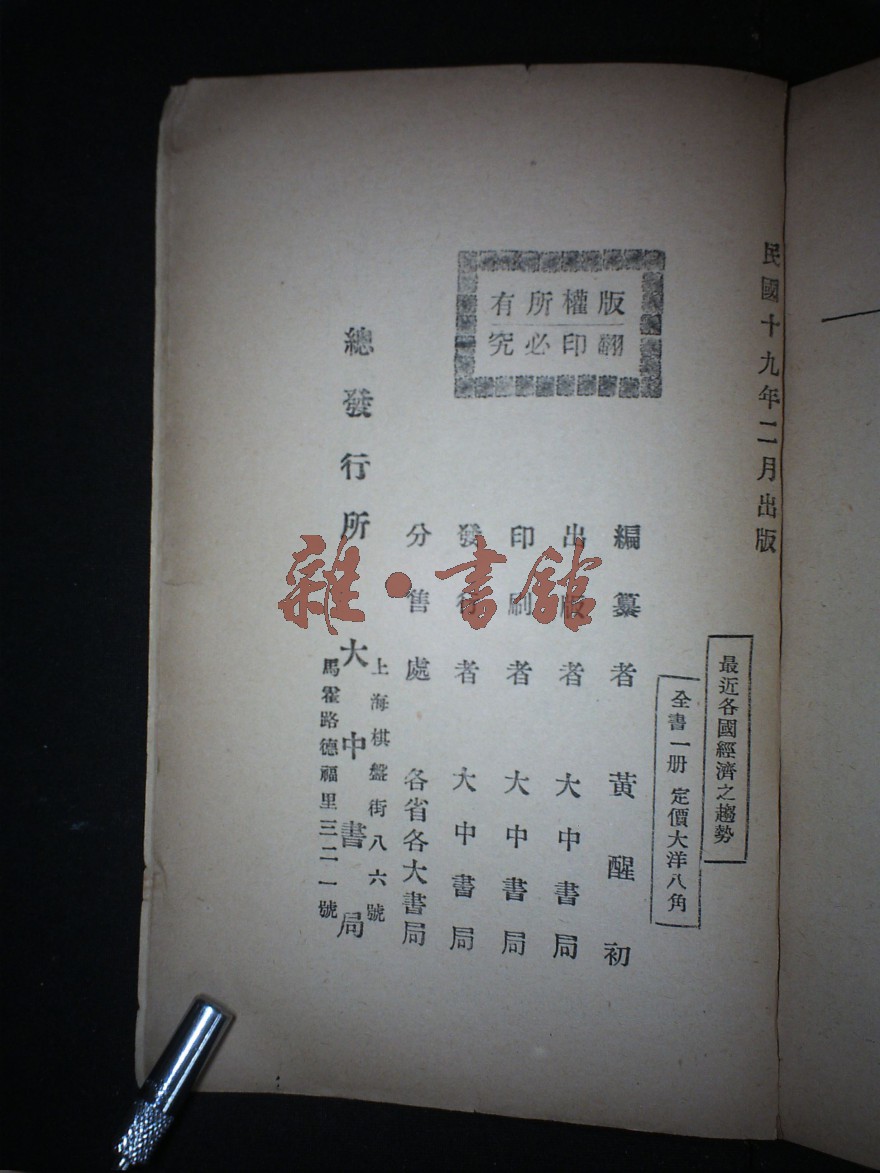 民國十九年二月出版
最近各國經濟之趨勢
全書一册 定價大洋八角
版權所有
翻印必究
編纂者 黃醒初
出版者 大中書局
印刷者 大中書局
發行者 大中書局
分售處 各省各大書局
總發行所 大中書局
上海棋盤街八六號
馬霍路德福里三二一號
雜·書館